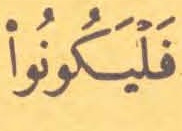 فَلْيَكُونُوا۟